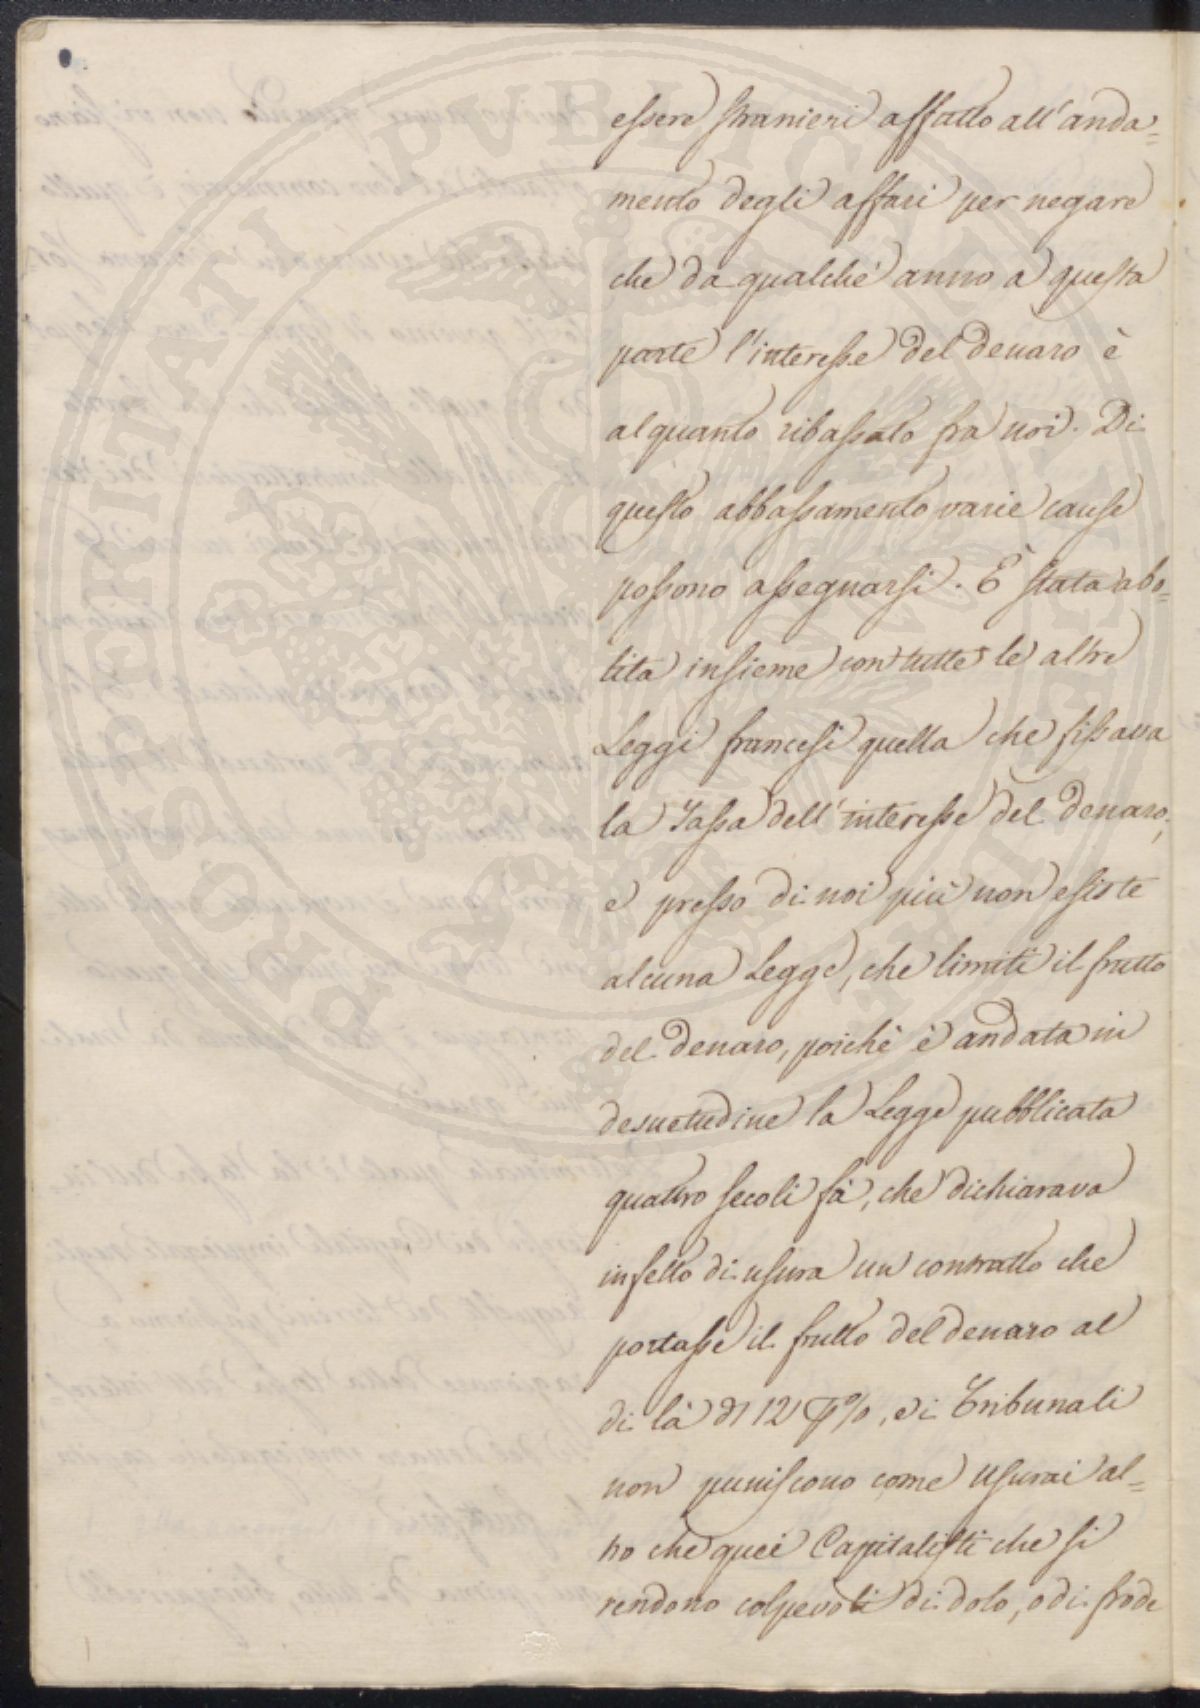 essere stranieri affatto all'anda=
mento degli affari per negare
che da qualche anno a questa
parte l'interesse del denaro è
alquanto ribassato fra noi. Di
questo abbassamento varie cause
possono assegnarsi. È stata abo=
lita insieme con tutte le altre
Leggi francesi quella che fissava
la Tassa dell'interesse del denaro;
e presso di noi più non esiste
alcuna Legge, che limiti il frutto
del denaro, poichè è andata in
desuetudine la Legge pubblicata
quattro secoli fà, che dichiarava
infetto di usura un contratto che
portasse il frutto del denaro al
di là di 12 P%, e i Tribunali
non puniscono come usurai al=
tro che quei Capitalisti che si
rendono colpevoli di dolo, o di frode
PROSPERITATI PUBLICAE AUGENDAE